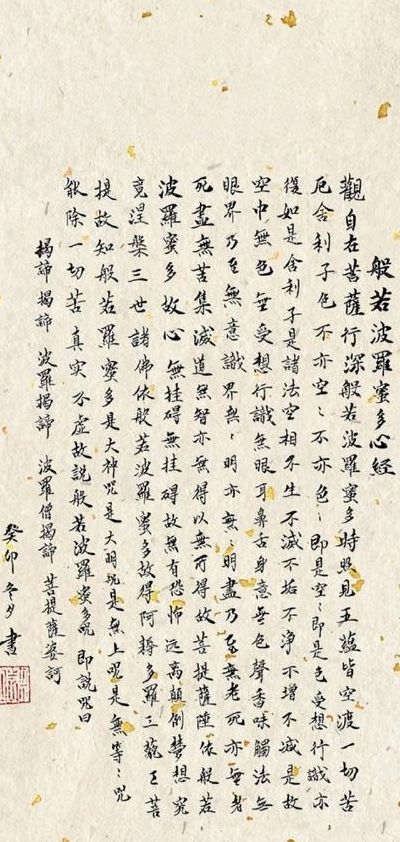 般若波羅蜜多心經
觀自在菩薩行深般若波羅蜜多時照見五蘊皆空渡一切苦
厄舍利子色不亦空〻不亦色〻即是空〻即是色受想行識亦
復如是舍利子是諸法空相不生不滅不垢不淨不增不減是故
空中無色無受想行識無眼耳鼻舌身意無色聲香味觸法無
眼界乃至無意識界無〻明亦無〻明盡乃至無老死亦無老
死盡無苦集滅道無智亦無得以無所得故菩提薩陲依般若
波羅蜜多故心無挂碍無挂碍故無有恐怖远离顛倒夢想究
竟涅槃三世諸佛依般若波羅蜜多故得阿耨多羅三藐三菩
提故知般若羅蜜多是大神咒是大明咒是無上咒是無等〻咒
能除一切苦真实不虛故説般若波羅蜜多咒即説咒曰
揭諦揭諦 波羅揭諦 波羅僧揭諦 菩提薩婆訶
癸卯冬夕書